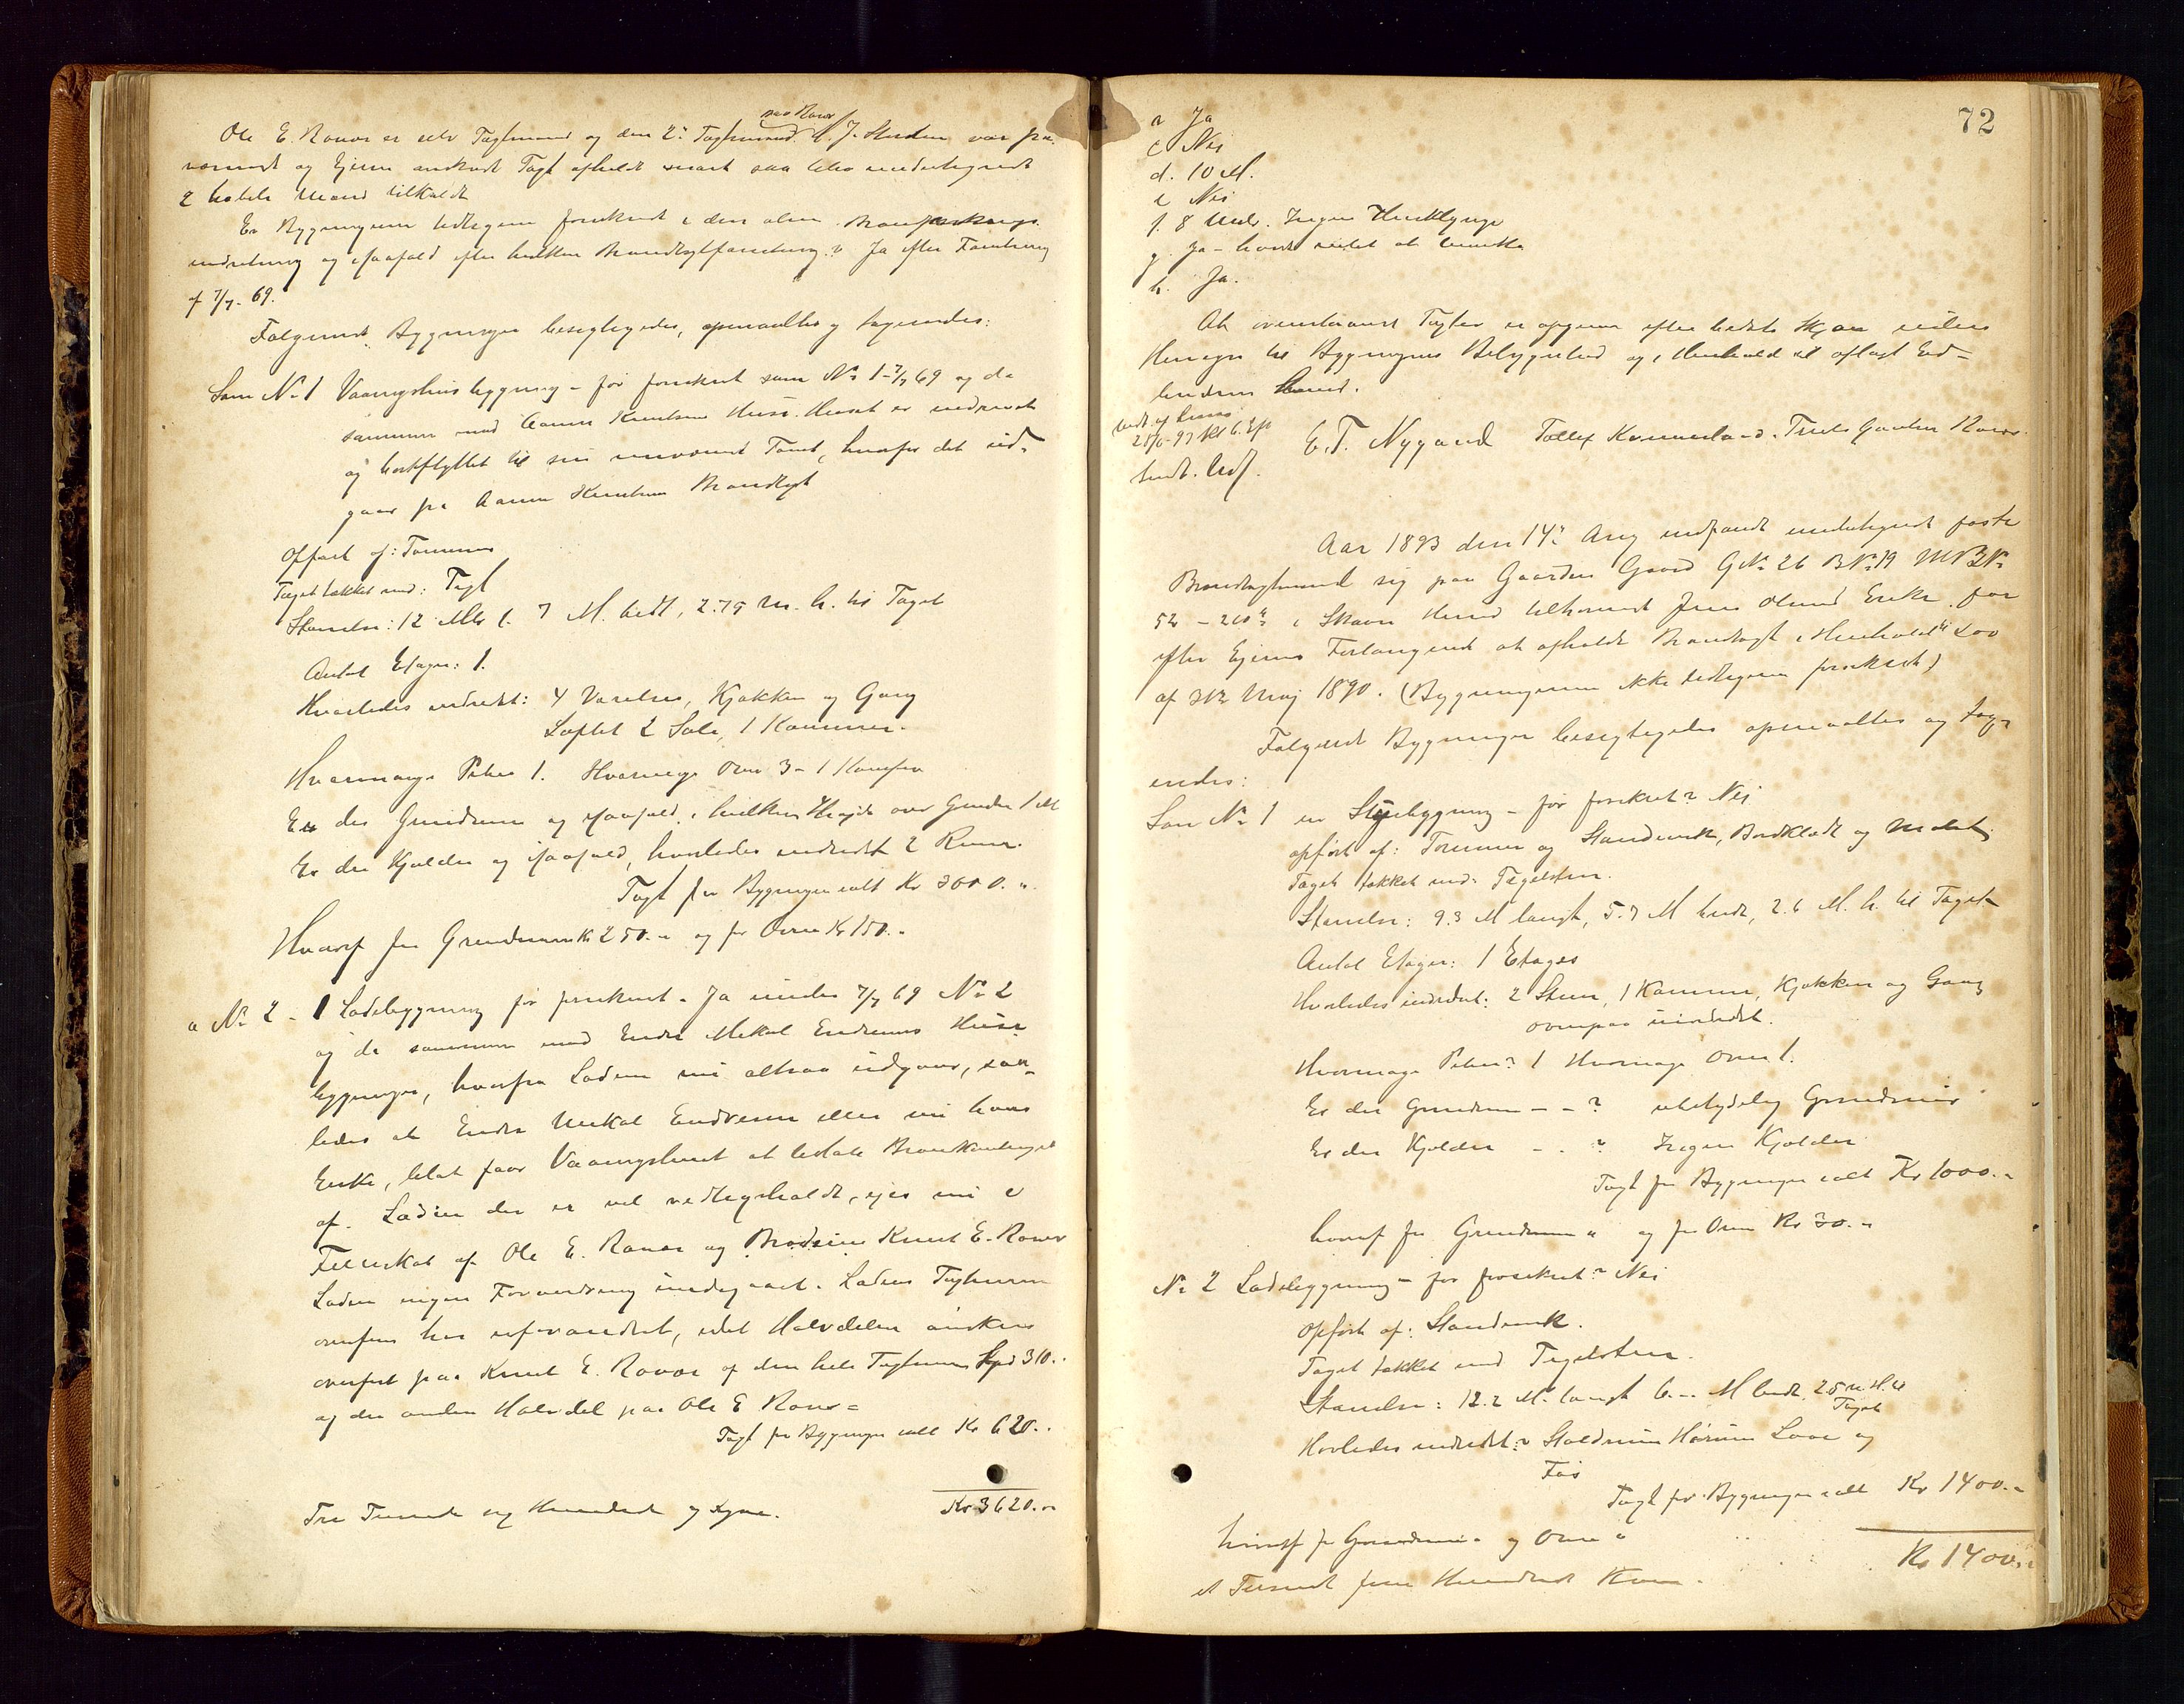 paa Rovær
Ole E. Rovær er selv Taxtmand og den 2den Taxtmand J. Studen var fra-
værende og Eieren ønskede Taxt afholdt snart saa blev undertegnede
2 Mænd tilkaldt
Er Bygningerne tidligere forsikret i den alm. Brandforsikrings-
indretning og isaafald efter hvilken Brandtaxtforretning? Ja efter Forretning
af 7/7-69.
Følgende Bygninger besigtigedes, opmaaltes og taxeredes:
Som No 1 Vaaningshusbygning - før forsikret som No 1 - 7/7 69 og da
sammen med Aamu Knutsens Huse. Huset er nedrevet
og bortflyttet til sin nuværende Tomt, hvorfor det ud-
gaar fra Knutsens Brandtaxt
Opført af: Tømmer
Taget tækket med: Tegl
Størrelse: 12 Mtr l. 7 M. bredt, 2.75 m. h. til Taget
Antal Etager: 1.
Hvorledes indredet: 4 Værelser, Kjøkken og Gang
Loftet 2 Sale, 1 Kammer.
Hvormange Piber 1. Hvormange Ovne 3 - 1 Komfur
Er der Grundmur og isaafald i hvilken Høyde over Grunden 1 M
Er der Kjælder og isaafald, hvorledes indredet 2 Rum.
Taxt for Bygningen ialt Kr 3000. "
Hvoraf for Grundmuren Kr 250. " og for Ovne Kr 150. "
a No 2 - 1 Ladebygning før forsikret - Ja under 7/7 69 No 2
og da sammen med Endre Mikal Endresens Hus-
bygninger, hvorfra Laden nu altsaa udgaar, saa-
ledes at Endre Mikal Endresen eller nu hans
Enke, blot faar Vaaningshuset at betale Brandkontingent
af. Laden der er vel vedligeholdt, ejes nu i
Fællesskab af Ole E. Rovær og Broderen Knut E. Rovær
Laden ingen Forandring undergaaet. Ladens Taxtsum
uforandret, idet Halvdelen ønskes
overført paa Knut E. Rovær af den hele Taxtsum Spd 310. "
og den anden Halvdel paa Ole E Rovær =
Taxt for Bygningen ialt Kr 620. "
Kr 3620. "
Tre Tusende sex Hundrede og tyve.
72
a Ja
c Nei
d. 10 M.
e Nei
f. 8 Mil. Ingen Husklynge
g. Ja -
h. Ja.
At ovennævnte Taxter er opgivne efter bedste Skjøn uden
Hensyn til Bygningens Beliggenhed og i Henhold til aflagt Ed -
bevidnes herved.
E. T. Nygaard Tollef Kvinnesland. Truls Gautesen Rovær.
Aar 1893 den 14de Aug indfandt undertegnede faste
Brandtaxtmænd sig paa Gaarden Gaard GNo 26 BNo 19 MBNo
52 - 210 i Skaare Herred tilhørende Jens Olsens Enke for
efter Ejerens Forlangende at afholde Brandtaxt i Henhold til Lov
af 31te Maj 1890. (Bygningerne ikke tidligere forsikret)
Følgende Bygninger besigtigedes opmaaltes og tax-
eredes:
Som No 1 en Stuebygning - før forsikret? Nei
opført af: Tømmer og Standværk, Bordklædt og malet
Taget tækket med: Tegelsten.
Størrelse: 9.3 M langt, 5.7 M bredt, 2.6 M. h. til Taget
Antal Etager: 1 Etages
Hvorledes indredet: 2 Stuer, 1 Kammer, Kjøkken og Gang
ovenpaa uindredet.
Hvormange Piber? 1 Hvormange Ovne 1.
Er der Grundmur - - ? ubetydelig Grundmur
Er der Kjelder - - ? Ingen Kjelder
Taxt for Bygningen ialt Kr 1000. "
hvoraf for Grundmur " og for Ovne Kr 30. "
No 2 Ladebygning - før forsikret? Nei
Opført af: Standværk.
Taget tækket med Tegelsten.
Størrelse: 12.2 M. langt 6. - M bredt 2.5 m h. til
Taget
Hvorledes indredet? Staldrum Hørum Love og
Fæs
Taxt for Bygningen ialt Kr 1400. "
hvoraf for Grundmur " og Ovne "
Kr 1400. "
et Tusend fire Hundrede Kroner.